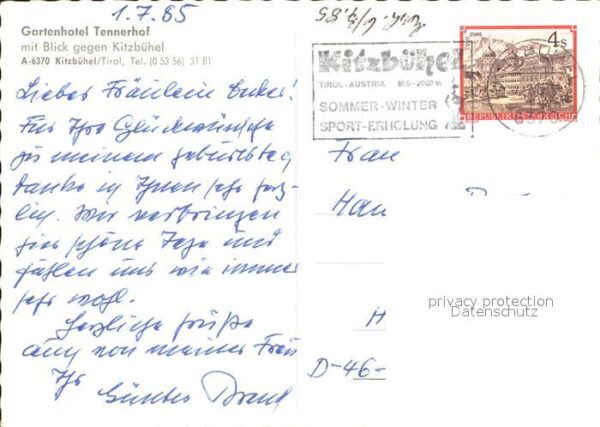 1.7.85
Gartenhotel Tennerhof
mit Blick gegen Kitzbühel
A-6370 Kitzbühel/Tirol, Tel. (0 53 56) 31 81
Liebes Fräulein
Für Ihre Glückwünsche
zu meinem Geburtstag
danke ich Ihnen sehr herz-
lich. Wir verbringen
hier schöne Tage und
fühlen uns wie immer
sehr wohl.
Herzliche Grüße
auch von meiner Frau
Ihr
Günter
Kitzbühel
TIROL-AUSTRIA 800-2000 m
SOMMER-WINTER
SPORT-ERHOLUNG
STAMS
4 S
REPUBLIK ÖSTERREICH
Frau
Han
H
D-46-
privacy protection
Datenschutz